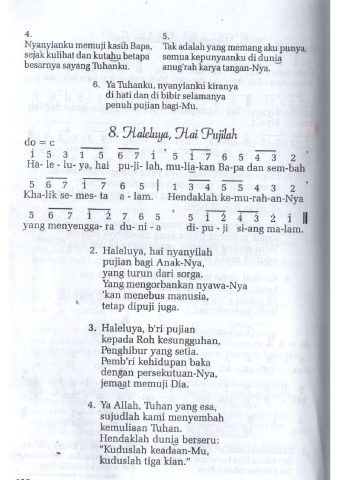 4.
Nyanyianku memuji kasih Bapa,
sejak kulihat dan kutahu betapa
besarnya sayang Tuhanku.
5.
Tak adalah yang memang aku punya,
semua kepunyaanku di dunia
anug'rah karya tangan-Nya.
6. Ya Tuhanku, nyanyianki kiranya
di hati dan di bibir selamanya
penuh pujian bagi-Mu.
8. Haleluya, Hai Pujilah
do = c
1 5 3 1 5 6 7 1 ' 5 1 7 6 5 4 3 2 '
Ha- le - lu- ya, hai pu-ji- lah, mu-lia-kan Ba-pa dan sem-bah
5 6 7 1 7 6 5 | 1 3 4 5 5 4 3 2 '
Kha-lik se- mes- ta a - lam. Hendaklah ke-mu-rah-an-Nya
5 6 7 1 2 7 6 5 ' 5 1 2 4 3 2 1
yang menyengga- ra du- ni - a di- pu - ji si-ang ma-lam.
2. Haleluya, hai nyanyilah
pujian bagi Anak-Nya,
yang turun dari sorga.
Yang mengorbankan nyawa-Nya
'kan menebus manusia,
tetap dipuji juga.
3. Haleluya, b'ri pujian
kepada Roh kesungguhan,
Penghibur yang setia.
Pemb'ri kehidupan baka
dengan persekutuan-Nya,
jemaat memuji Dia.
4. Ya Allah, Tuhan yang esa,
sujudlah kami menyembah
kemuliaan Tuhan.
Hendaklah dunia berseru:
"Kuduslah keadaan-Mu,
kuduslah tiga kian."